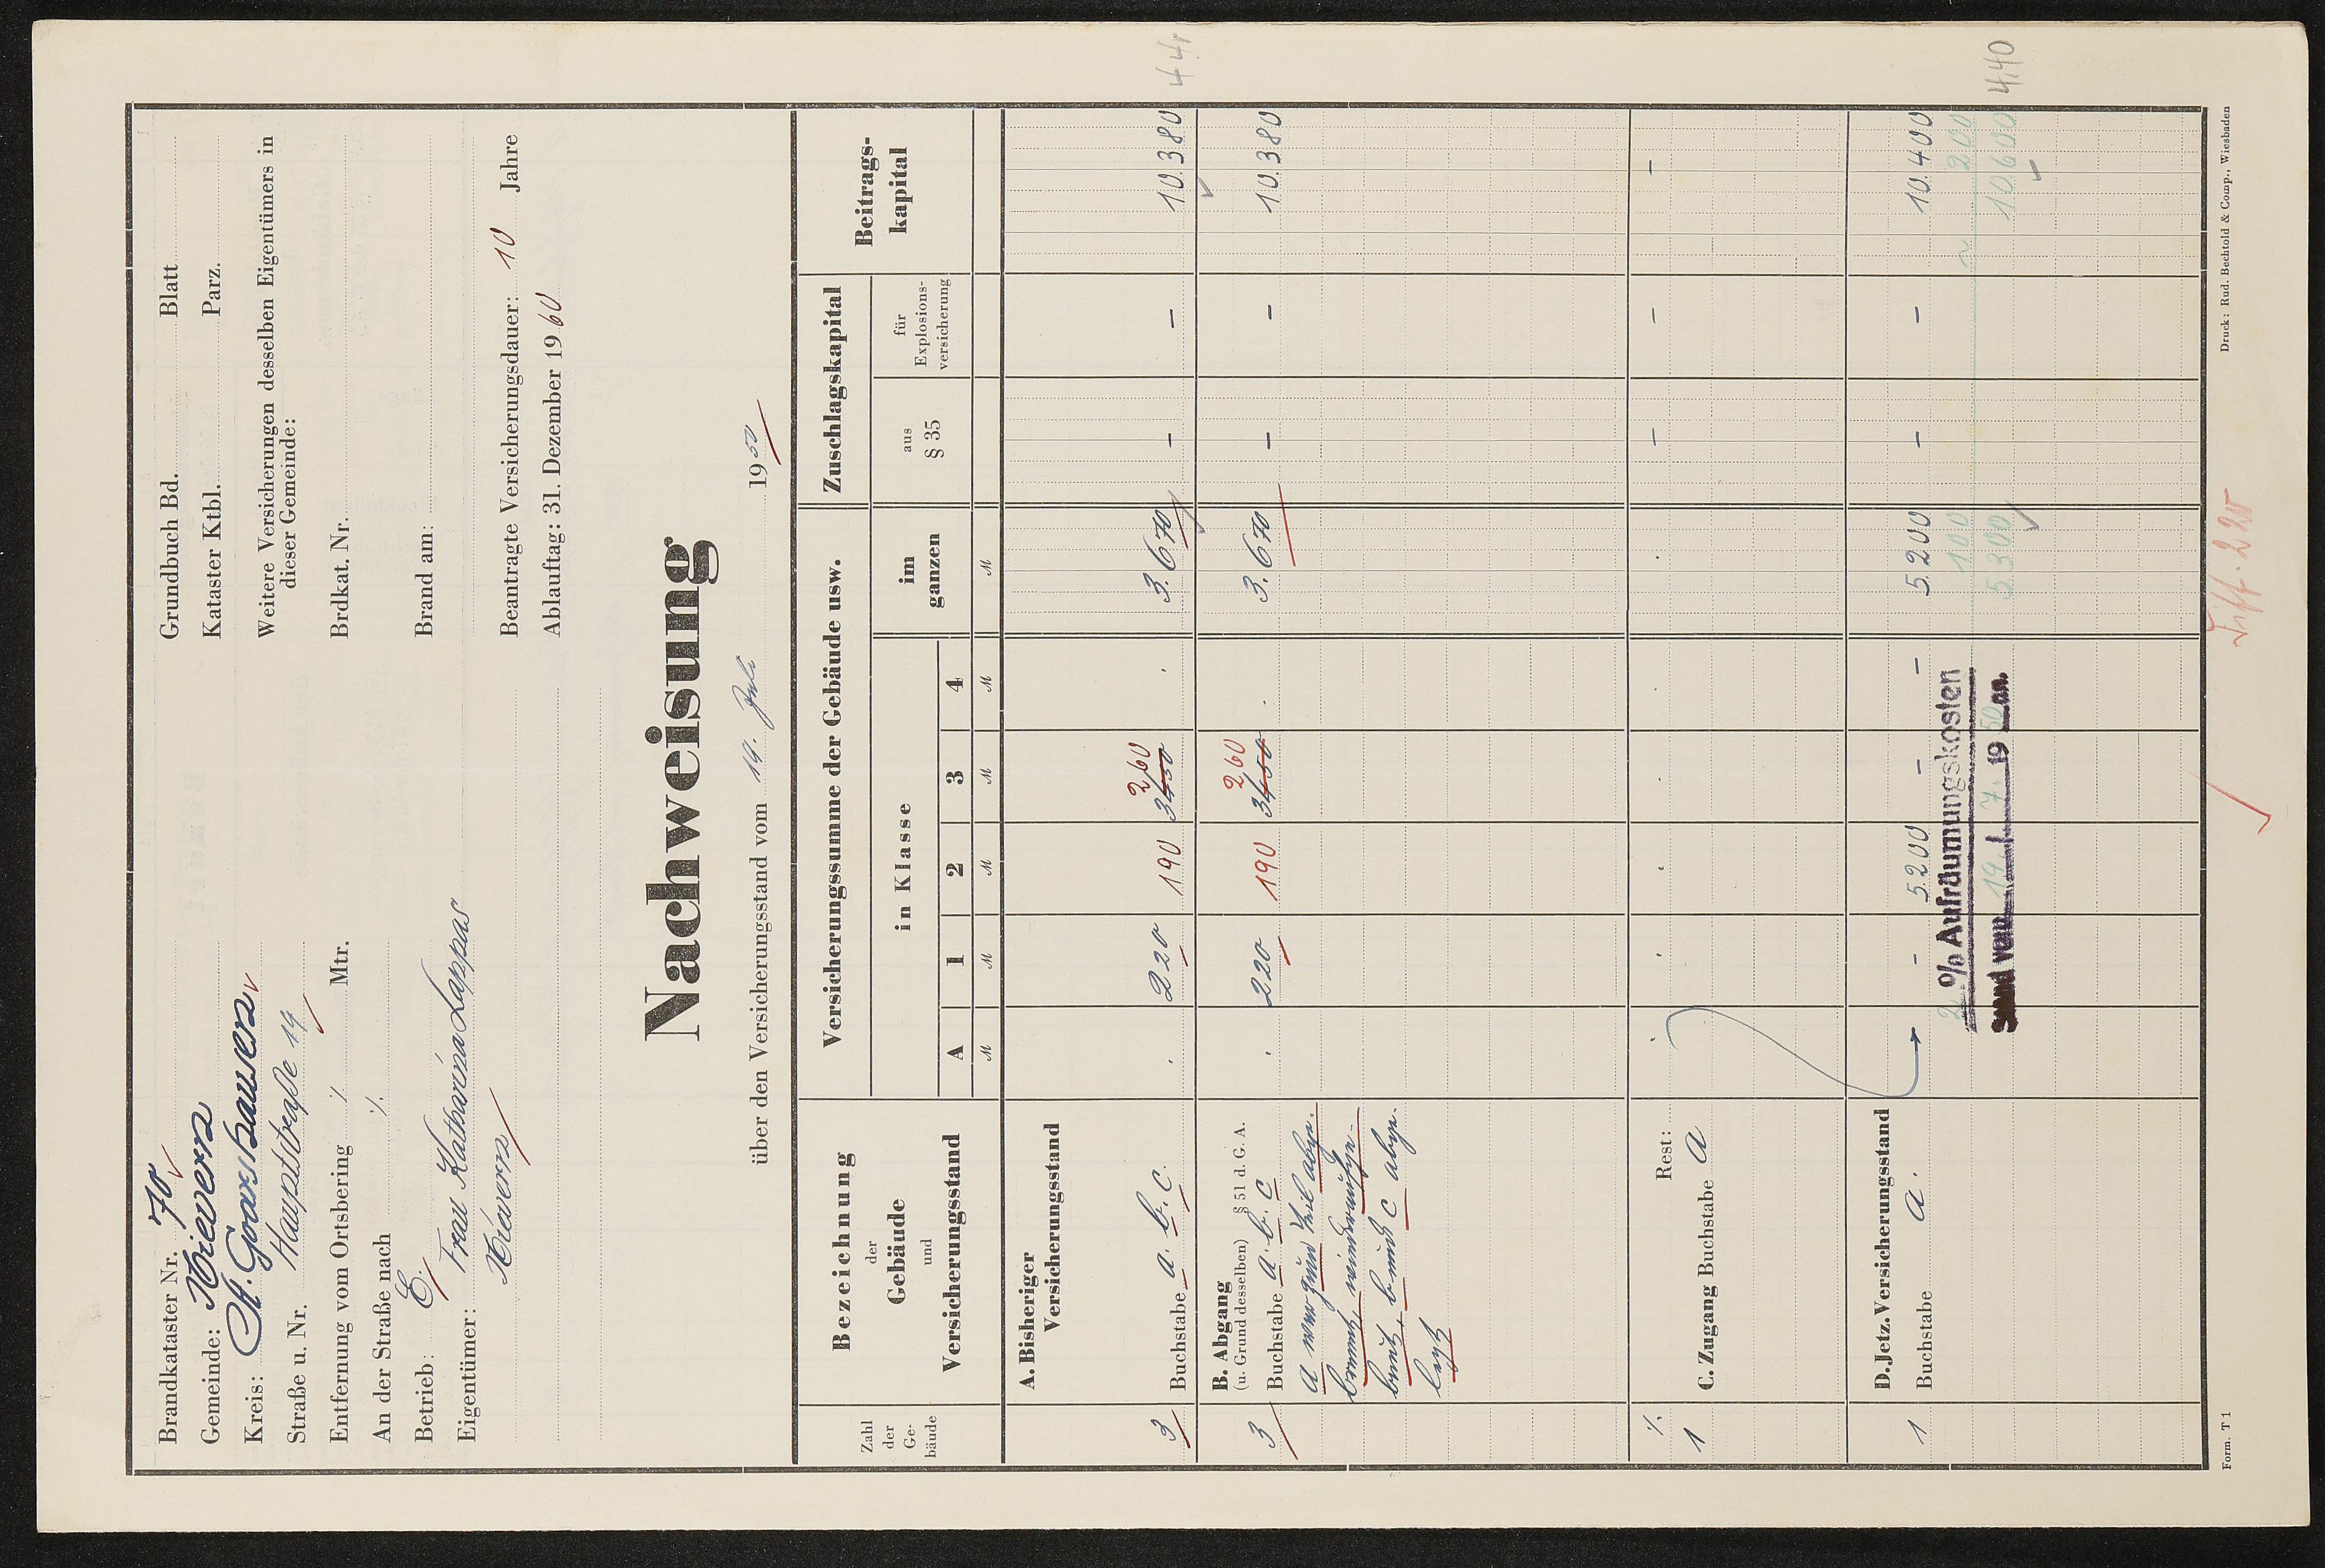 Brandkataster Nr. 70
Gemeinde: Nievern
Kreis: St. Goarshausen
Straße u. Nr. Hauptstraße 19
Entfernung vom Ortsbering ⁒ Mtr.
An der Straße nach ⁒
Betrieb: E.
Eigentümer: Frau Katharina Lappas
Nievern
Grundbuch Bd. Blatt
Kataster Ktbl. Parz.
Weitere Versicherungen desselben Eigentümers in
dieser Gemeinde:
Brdkat. Nr.
Brand am:
Beantragte Versicherungsdauer: 10 Jahre
Ablauftag: 31. Dezember 1960
Nachweisung
über den Versicherungsstand vom 19. Juli 1950
Zahl der Ge-bäude
Bezeichnung
der
Gebäude
und
Versicherungsstand
Versicherungssumme der Gebäude usw.
in Klasse
A 1 2 3 4
im
ganzen
M M M M M M
Zuschlagskapital
aus
§ 35
für
Explosions-
versicherung
Beitrags-
kapital
A. Bisheriger
Versicherungsstand
3 Buchstabe a. b. c. . 220 190 3450 260 . 3.670 – – 10.380
44,
B. Abgang
(u. Grund desselben) § 51 d. G. A.
3 Buchstabe a. b. c . 220 190 3450 260 . 3.670 – – 10.380
a zum Teil abge-
brannt,
b und c abge-
Rest:
⁒ . . . . . . – – –
1 C. Zugang Buchstabe a
D. Jetz. Versicherungsstand
1 Buchstabe a. – 5200 – – 5.200 – – 10.400
2 % Aufräumungskosten 100 200
Stand vom 19. 7. 1950 an. 5300 10.600
4,40
Diff. 220
Form. T 1
Druck: Rud. Bechtold & Comp., Wiesbaden